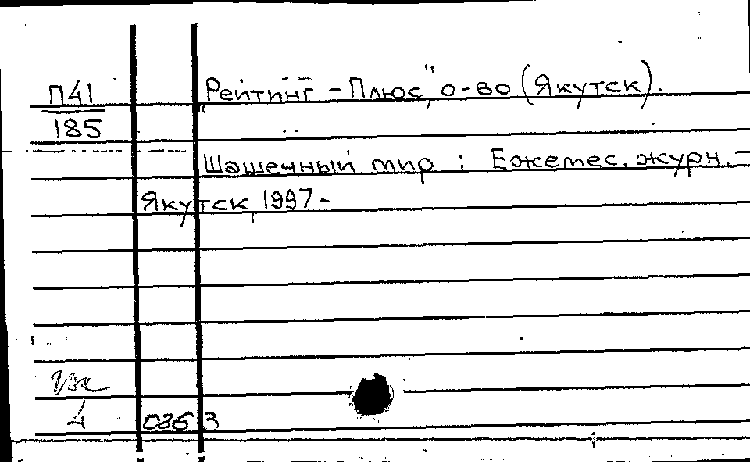 П41
185
"Рейтинг-Плюс", о-во (Якутск).
Шашечный мир : Ежемес. журн. –
Якутск, 1997-
4